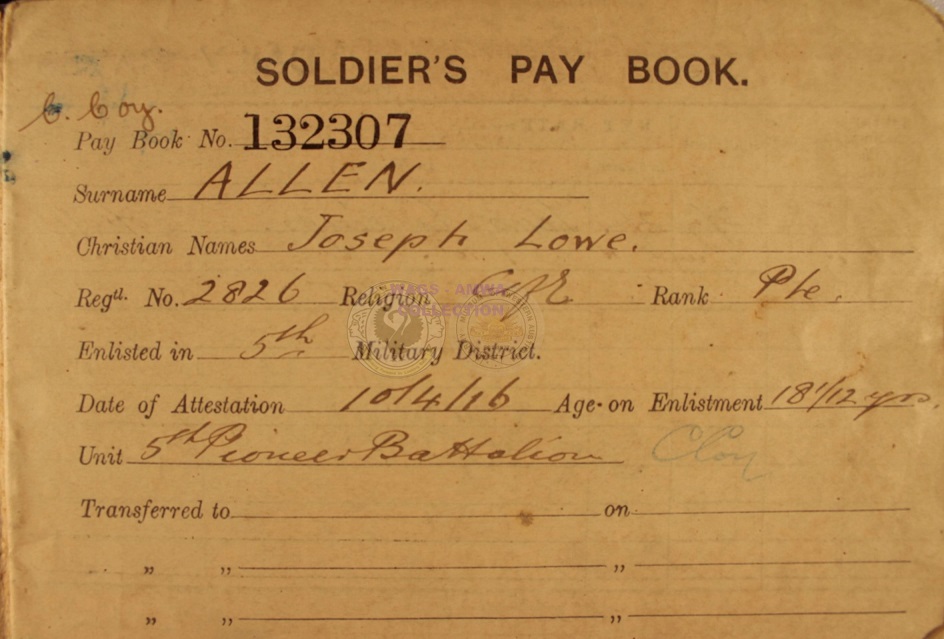 SOLDIER'S PAY BOOK.
C. Coy.
Pay Book No. 132307
Surname ALLEN.
Christian Names Joseph Lowe.
Regtl. No. 2826 Religion C of E Rank Pte.
COLLECTION
Enlisted in 5th Military District.
Date of Attestation 10/4/16 Age on Enlistment 18 1/12 yrs.
Unit 5th Pioneer Battalion C Coy
Transferred to on
„ „ „
„ „ „